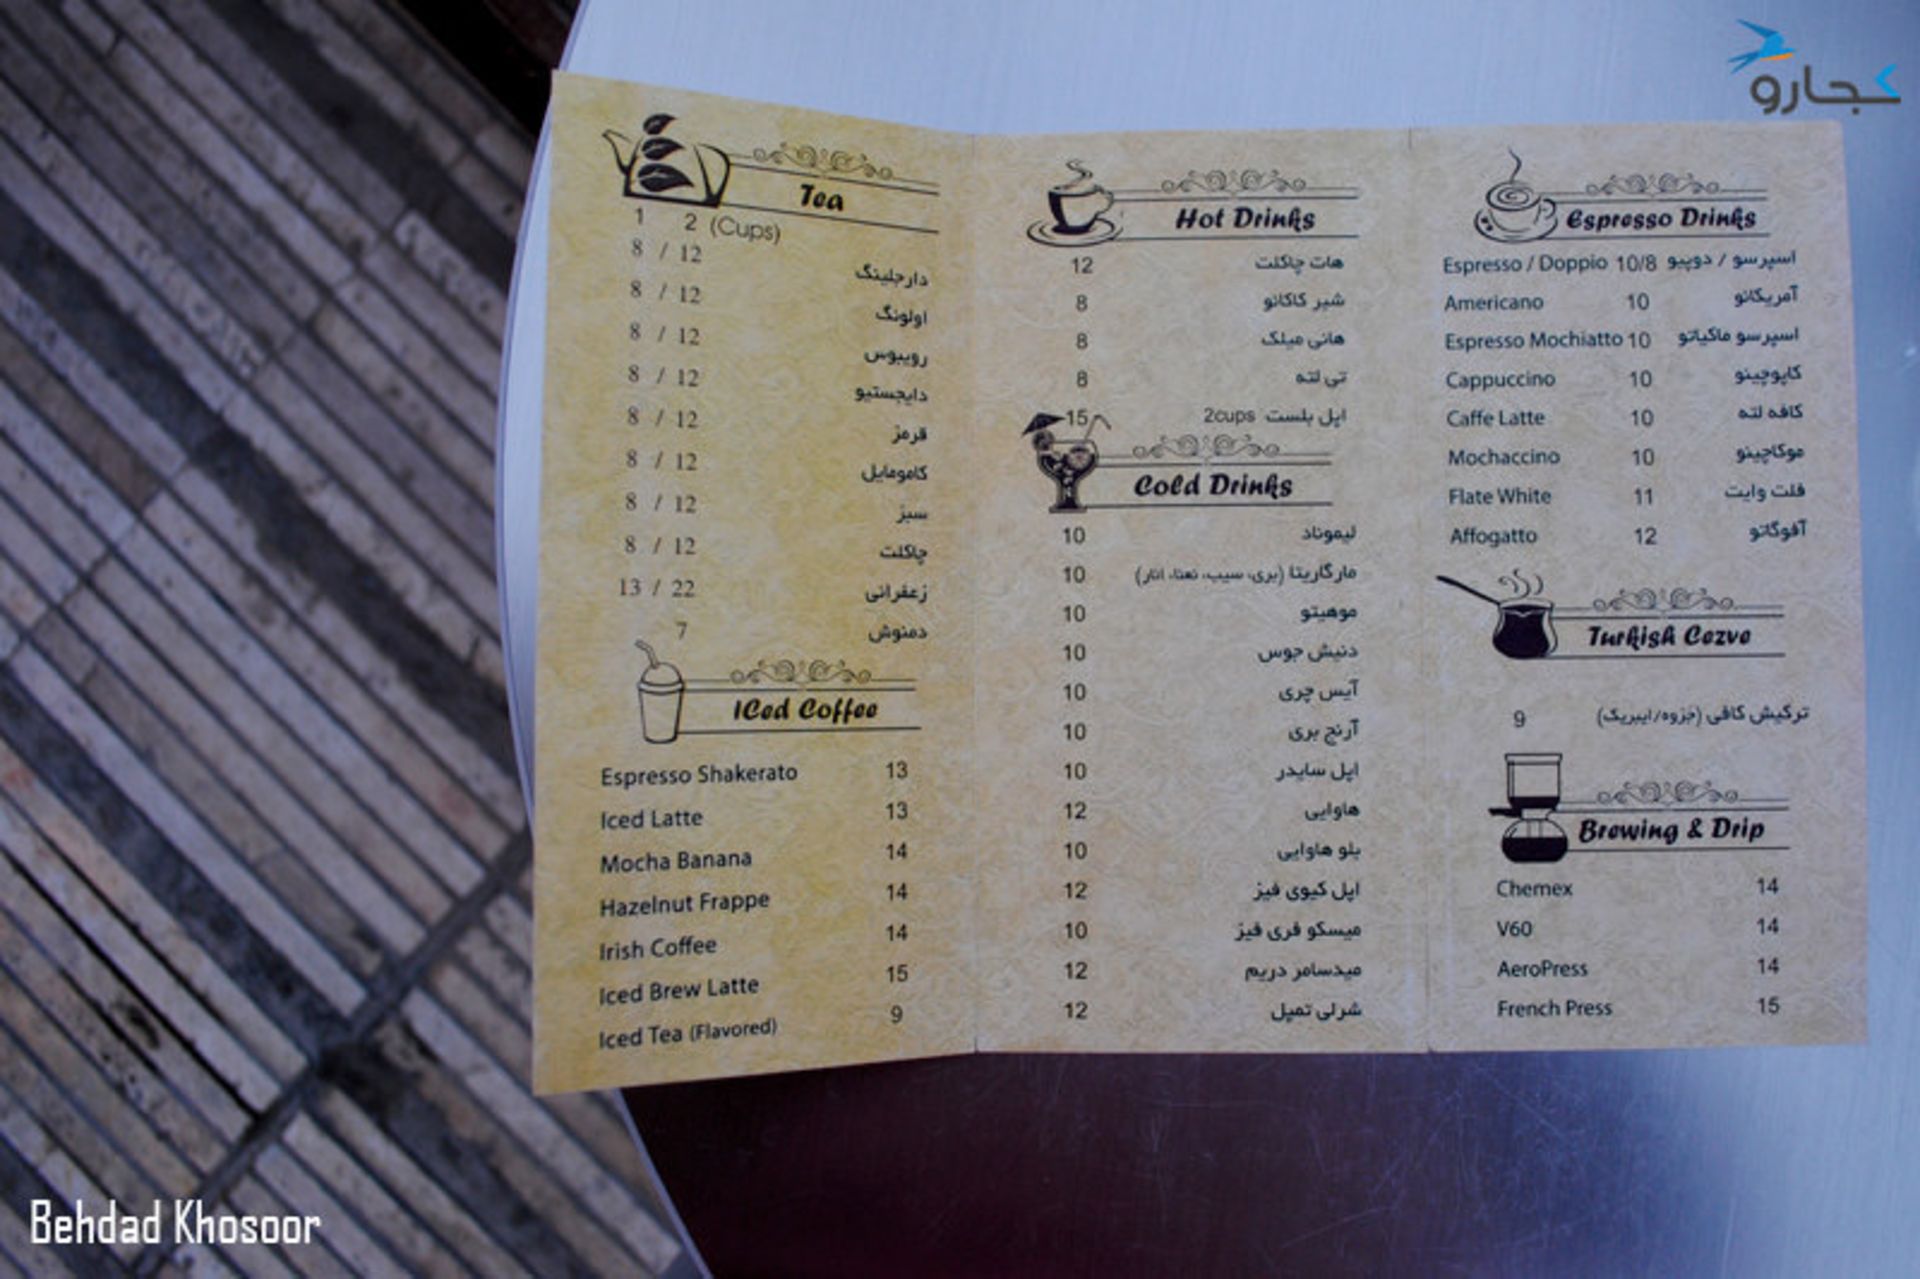 کجارو
Tea
1 2 (Cups)
8 / 12 دارجلینگ
8 / 12 اولونگ
8 / 12 رویبوس
8 / 12 دایجستیو
8 / 12 قرمز
8 / 12 کامومایل
8 / 12 سبز
8 / 12 چاکلت
13 / 22 زعفرانی
7 دمنوش
ICed Coffee
Espresso Shakerato 13
Iced Latte 13
Mocha Banana 14
Hazelnut Frappe 14
Irish Coffee 14
Iced Brew Latte 15
Iced Tea (Flavored) 9
Hot Drinks
12 هات چاکلت
8 شیر کاکائو
8 هانی میلک
8 تی لته
15 اپل بلست 2cups
Cold Drinks
10 لیموناد
10 مارگاریتا (بری، سیب، نعنا، انار)
10 موهیتو
10 دنیش جوس
10 آیس چری
10 آرنج بری
10 اپل سایدر
12 هاوایی
10 بلو هاوایی
12 اپل کیوی فیز
10 میسکو فری فیز
12 میدسامر دریم
12 شرلی تمپل
Espresso Drinks
Espresso / Doppio 10/8 اسپرسو / دوپیو
Americano 10 آمریکانو
Espresso Mochiatto 10 اسپرسو ماکیاتو
Cappuccino 10 کاپوچینو
Caffe Latte 10 کافه لته
Mochaccino 10 موکاچینو
Flate White 11 فلت وایت
Affogatto 12 آفوگاتو
Turkish Cezve
9 ترکیش کافی (جزوه/ایبریک)
Brewing & Drip
Chemex 14
V60 14
AeroPress 14
French Press 15
Behdad Khosoor